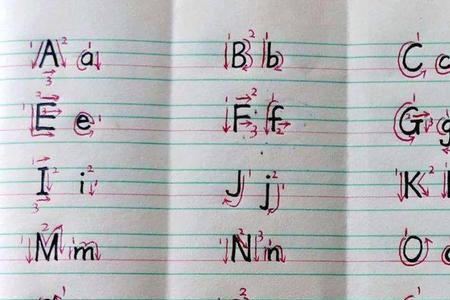 A a B b C c
E e F f G g
I i J j K
M m N n O